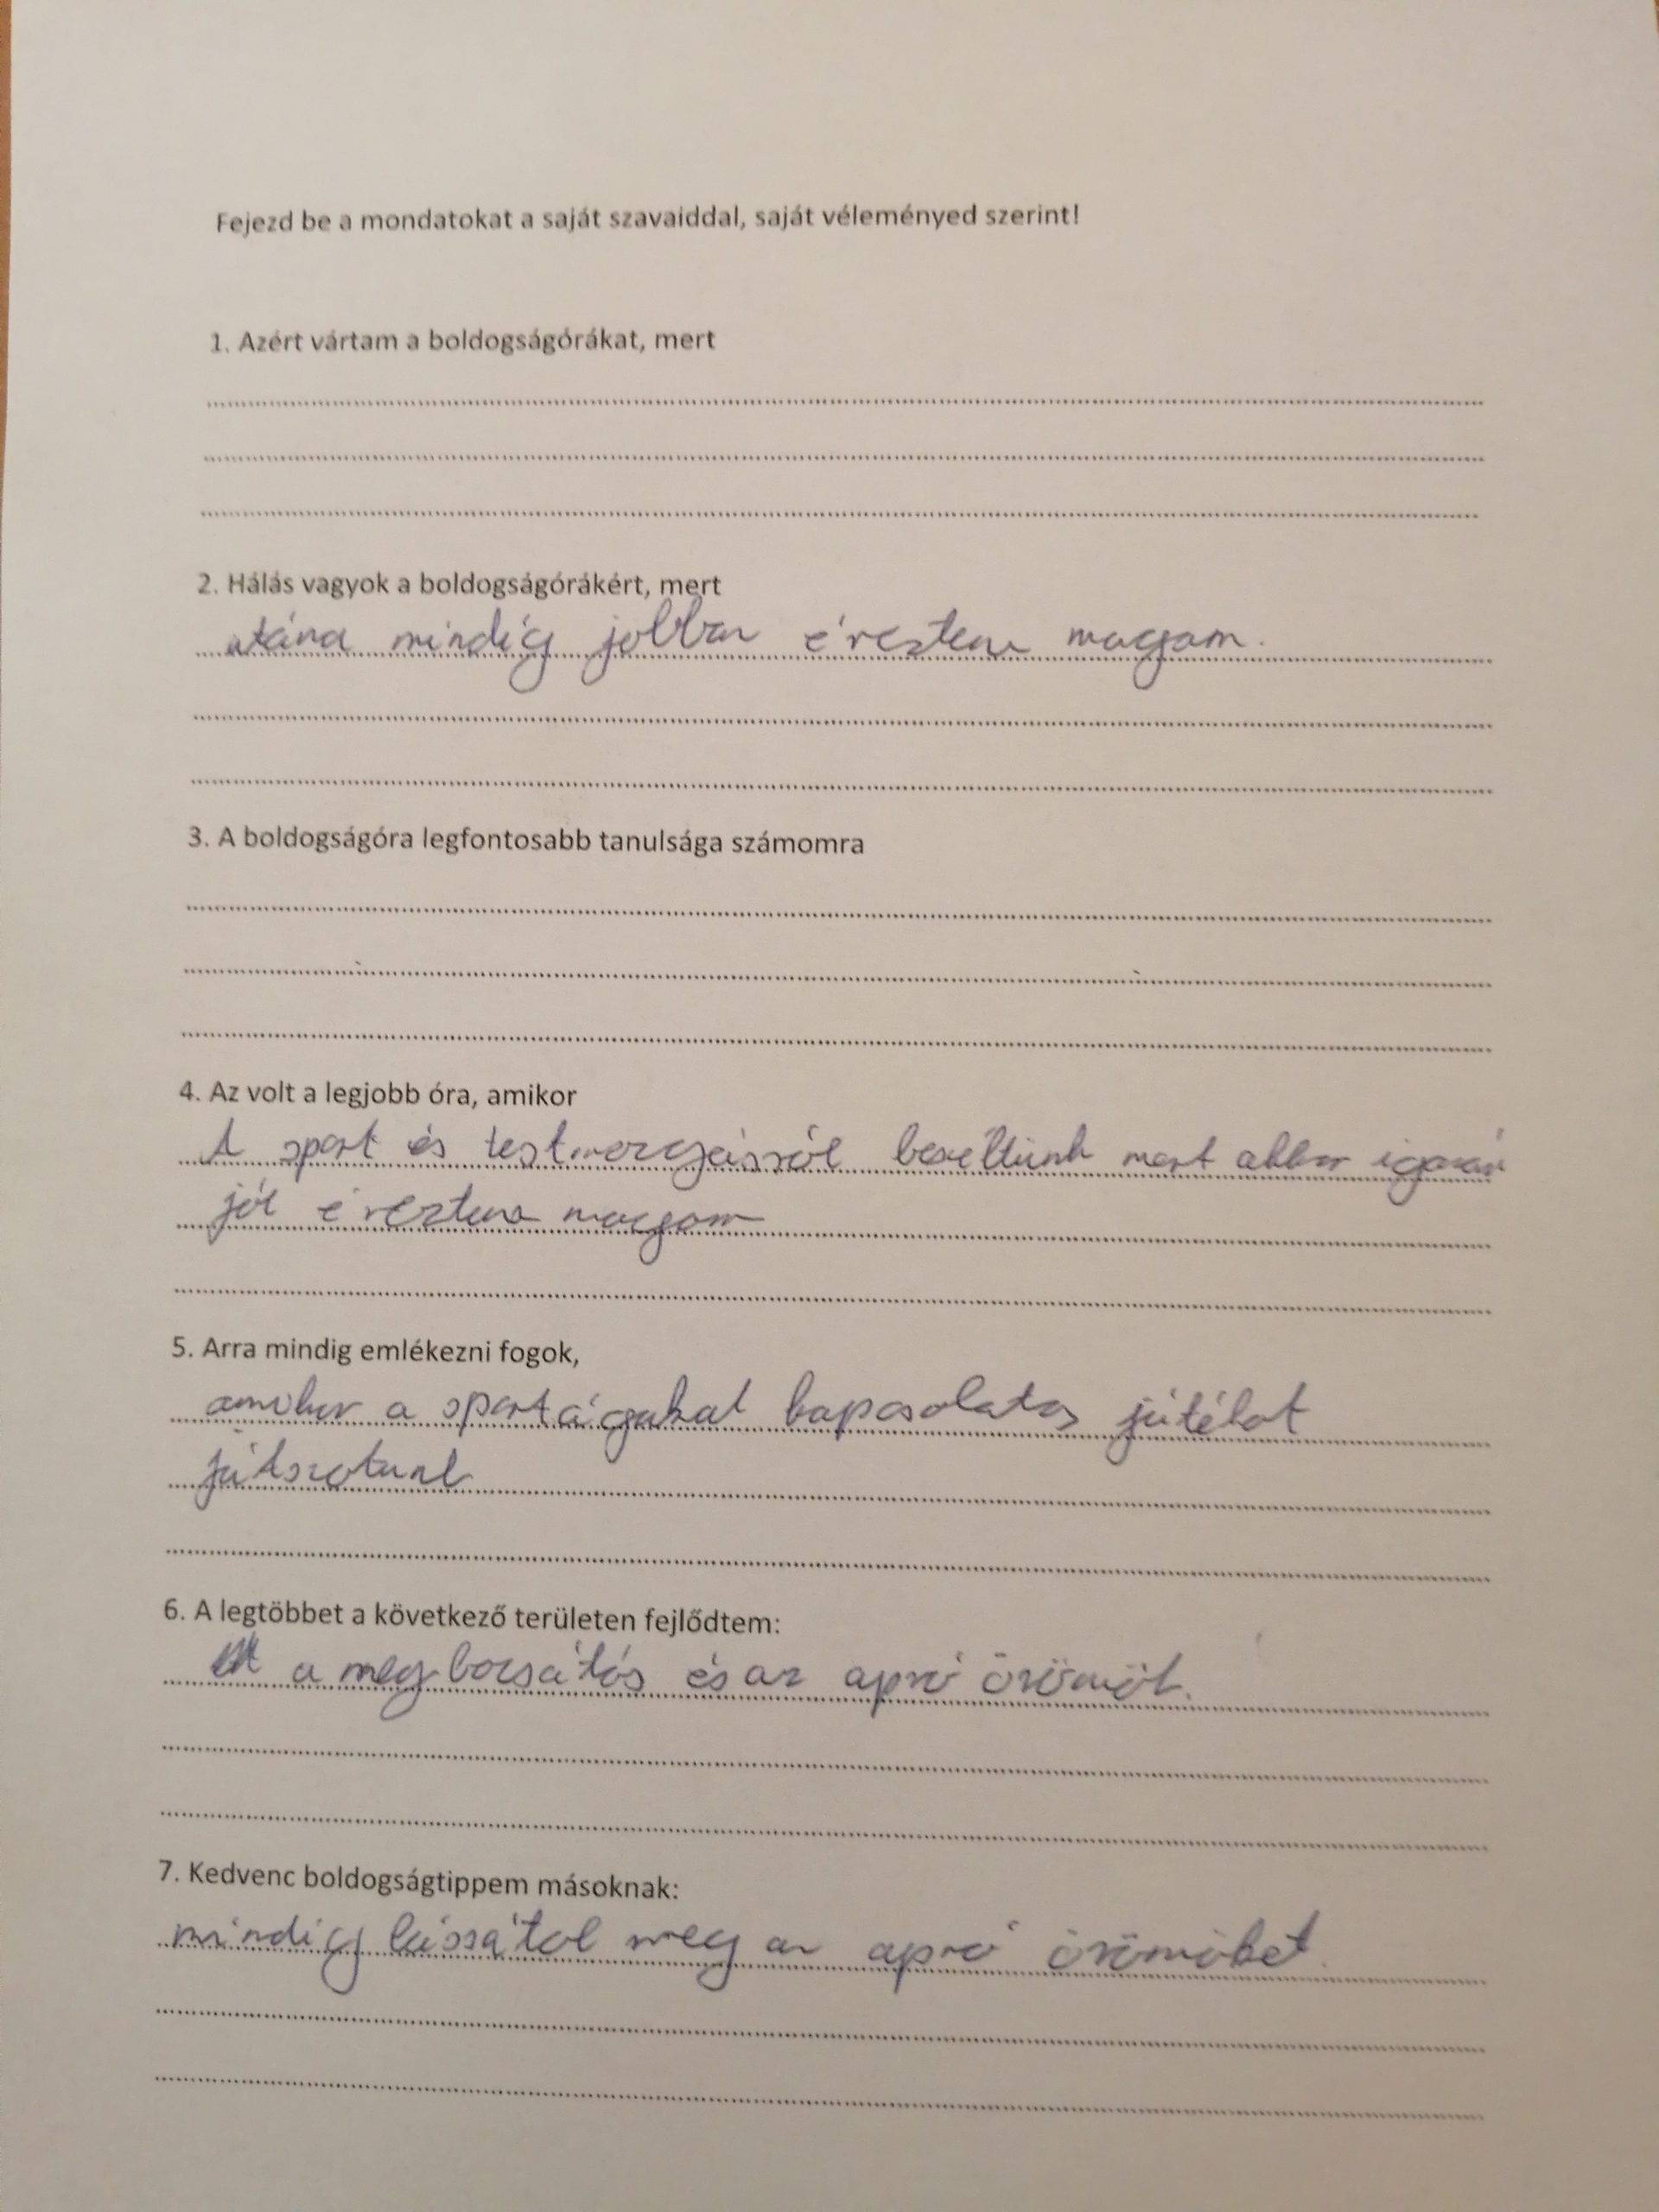 Fejezd be a mondatokat a saját szavaiddal, saját véleményed szerint!
1. Azért vártam a boldogságórákat, mert
2. Hálás vagyok a boldogságórákért, mert
utána mindig jobban éreztem magam.
3. A boldogságóra legfontosabb tanulsága számomra
4. Az volt a legjobb óra, amikor
A sport és testmozgásról beszéltünk mert abban igazán
jól éreztem magam
5. Arra mindig emlékezni fogok,
amikor a sportágakal kapcsolatos játékot
játszotunk
6. A legtöbbet a következő területen fejlődtem:
a megbocsátás és az apró örömök.
7. Kedvenc boldogságtippem másoknak:
mindig lássátok meg az apró örömöket.